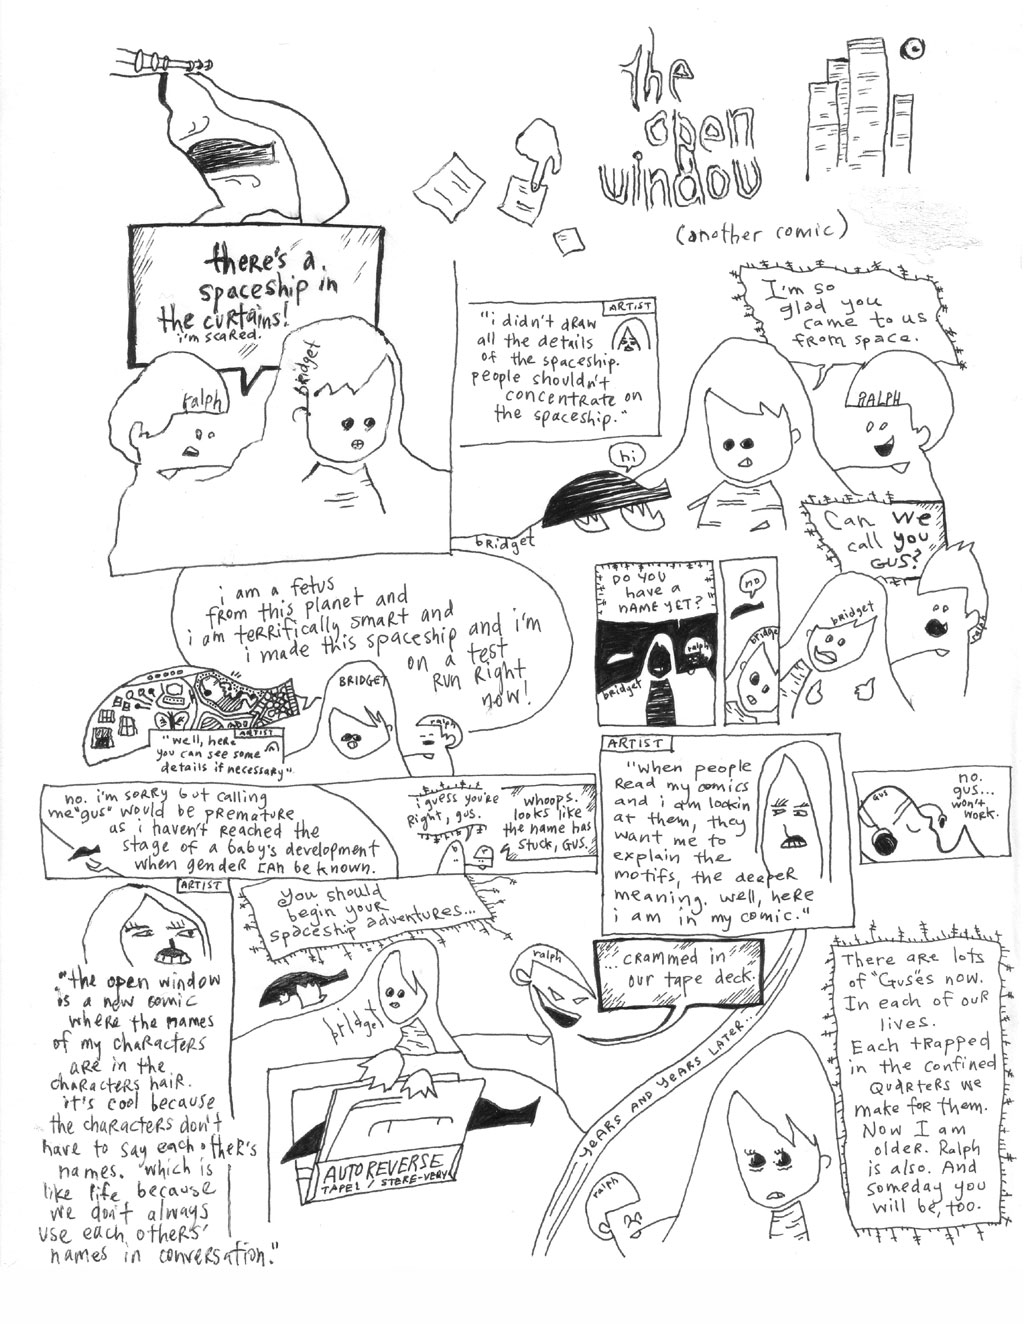 the
open
window
(another comic)
there's a
spaceship in
the curtains!
i'm scared.
ralph
bridget
ARTIST
"i didn't draw
all the details
of the spaceship.
people shouldn't
concentrate on
the spaceship."
I'm so
glad you
came to us
from space.
RALPH
hi
bridget
Can we
call you
GUS?
i am a fetus
from this planet and
i am terrifically smart and
i made this spaceship and i'm
on a test
run right
now!
BRIDGET
ralph
ARTIST
"well, here
you can see some
details if necessary".
DO YOU
have a
NAME YET?
ralph
bridget
no
bridge
bridget
ralph
no. i'm sorry but calling
me "gus" would be premature
as i haven't reached the
stage of a baby's development
when gender can be known.
i guess you're
right, gus.
whoops.
looks like
the name has
stuck, GUS.
ARTIST
"When people
read my comics
and i am lookin
at them, they
want me to
explain the
motifs, the deeper
meaning. well, here
i am in my comic."
GUS
no.
gus...
won't
work.
ARTIST
"the open window
is a new comic
where the names
of my characters
are in the
characters hair.
it's cool because
the characters don't
have to say each other's
names. which is
like life because
we don't always
use each others'
names in conversation."
you should
begin your
spaceship adventures...
bridget
ralph
... crammed in
our tape deck.
AUTO REVERSE
TAPE 1 / STERE-VERY
YEARS AND YEARS LATER...
ralph
There are lots
of "Gus"es now.
In each of our
lives.
Each trapped
in the confined
quarters we
make for them.
Now I am
older. Ralph
is also. And
someday you
will be, too.